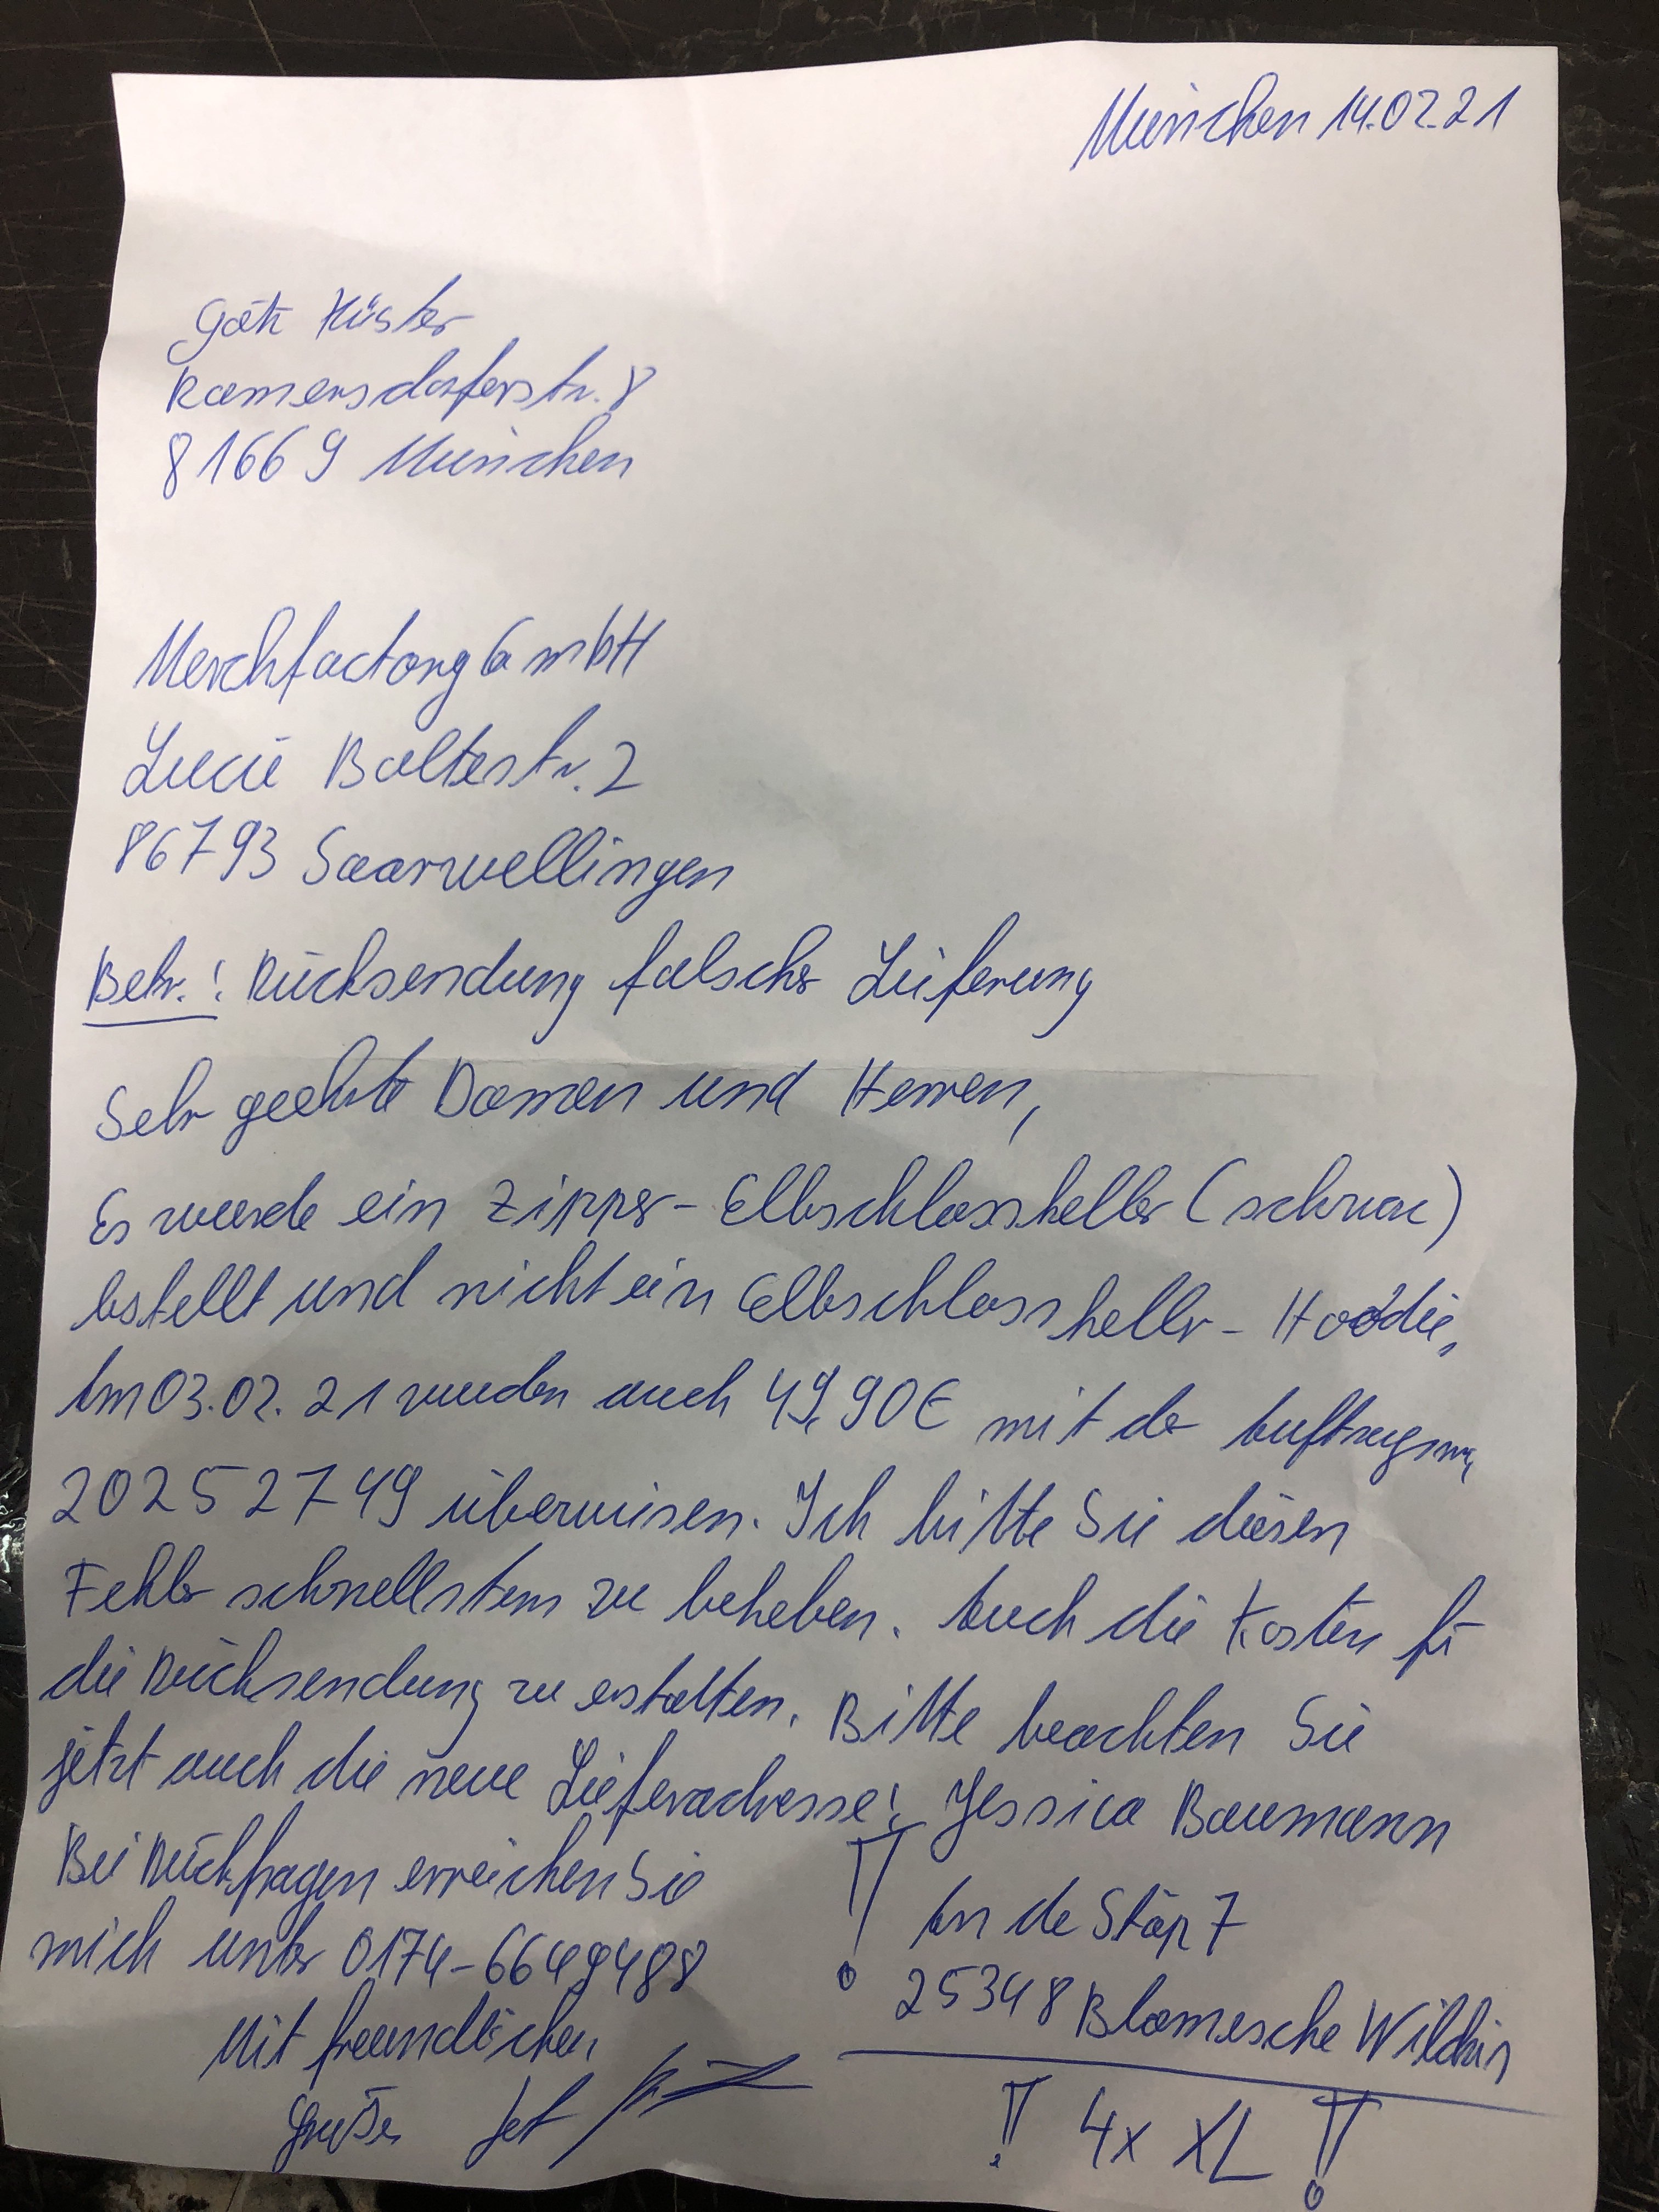 München 14.02.21
Götz Küster
Ramersdorferstr. 8
81669 München
Merchfactory GmbH
Lucie Boltestr. 2
86793 Saarwellingen
Betr.: Rücksendung falscher Lieferung
Sehr geehrte Damen und Herren,
Es wurde ein Zipper-Elbschlosskeller (schwarz)
bestellt und nicht ein Elbschlosskeller-Hoodie,
Am 03.02.21 wurden auch 49,90€ mit der Auftragsnr,
20252749 überwiesen. Ich bitte Sie diesen
Fehler schnellstens zu beheben. Auch die Kosten für
die Rücksendung zu erstatten. Bitte beachten Sie
jetzt auch die neue Lieferadresse: Jessica Baumann
! An de Stöp 7
25348 Blomesche Wildnis
! 4x XL !
Bei Rückfragen erreichen Sie
mich unter 0174-6649488
Mit freundlichen
Grüßen